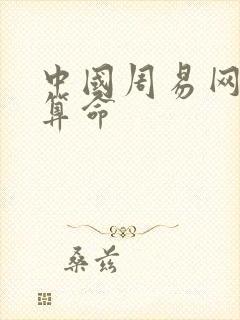 中國周易网
算命
桑兹